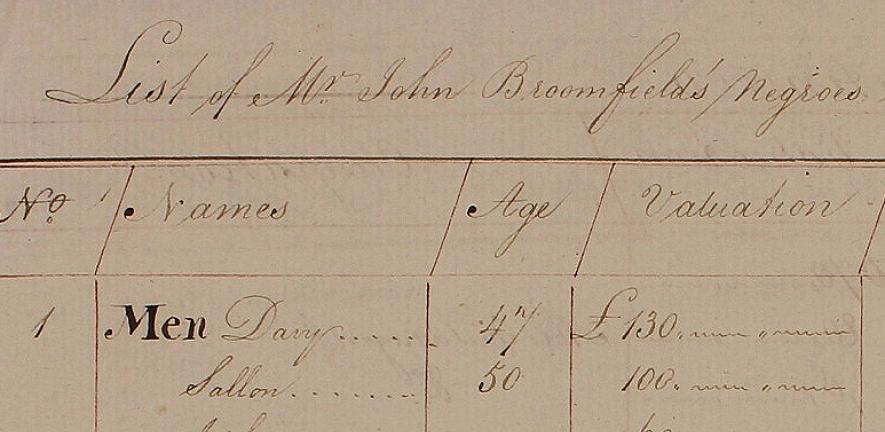 List of Mr. John Broomfield's Negroes
No. Names Age Valuation
1 Men Davy..... 47 £ 130. " "
Sallon........ 50 100. " "